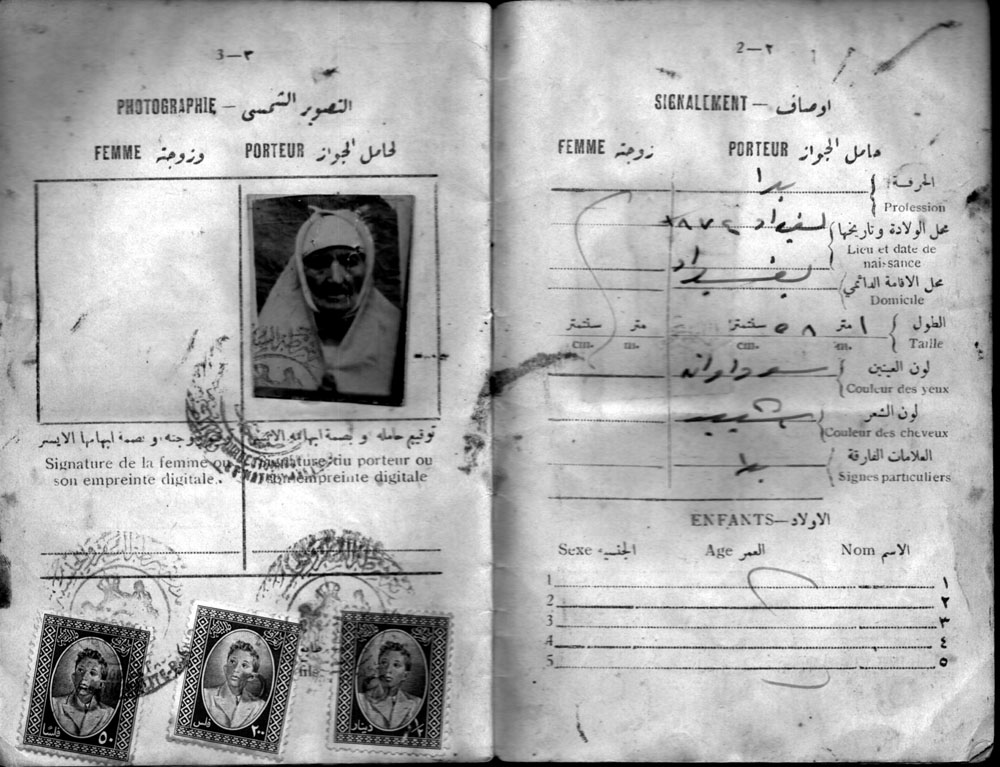 3—٣
PHOTOGRAPHIE — التصوير الشمسى
FEMME وزوجته PORTEUR لحامل الجواز
توقيع حامله و بصمة ابهامه
وزوجته و بصمة ابهامها الايسر
Signature de la femme ou
son empreinte digitale.
Signature du porteur ou
son empreinte digitale
fils
٥٠ فلسًا
٢٠٠ فلس
١/٢ دينار
2—٢
SIGNALEMENT — اوصاف
FEMME زوجته PORTEUR حامل الجواز
الحرفة
Profession
محل الولادة وتاريخها
بغداد ١٨٧٤
Lieu et date de
naissance
محل الاقامة الدائمي
بغداد
Domicile
الطول ١ متر ٥٨ سنتمتر متر سنتمتر
Taille m. cm. m. cm.
لون العينين
Couleur des yeux
لون الشعر
Couleur des cheveux
العلامات الفارقة
Signes particuliers
ENFANTS—الاولاد
Sexe الجنسية Age العمر Nom الاسم
1 ١
2 ٢
3 ٣
4 ٤
5 ٥